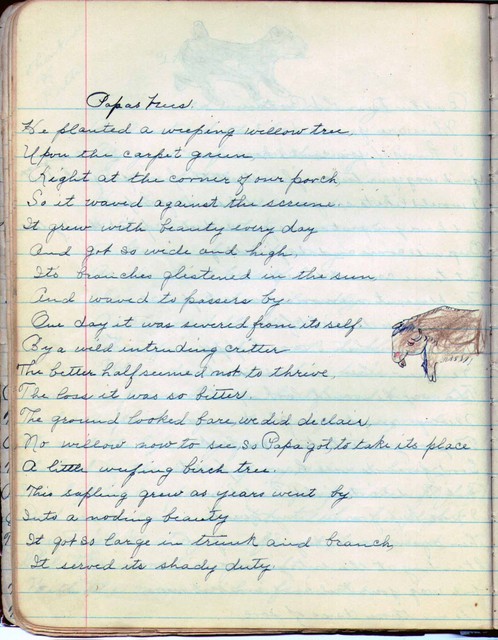 Papas Trees.
He planted a weeping willow tree,
Upon the carpet green,
Right at the corner of our porch,
So it waved against the screene.
It grew with beauty every day
And got so wide and high,
Its branches glistened in the sun,
And waved to passers by.
One day it was severed from its self
By a wild intruding critter
The better half seemed not to thrive,
The loss it was so bitter.
The ground looked bare, we did declair,
No willow now to see so Papa got, to take its place
A little weeping birch tree.
This sapling grew as years went by
Into a noding beauty
It got so large in trunk and branch,
It served its shady duty